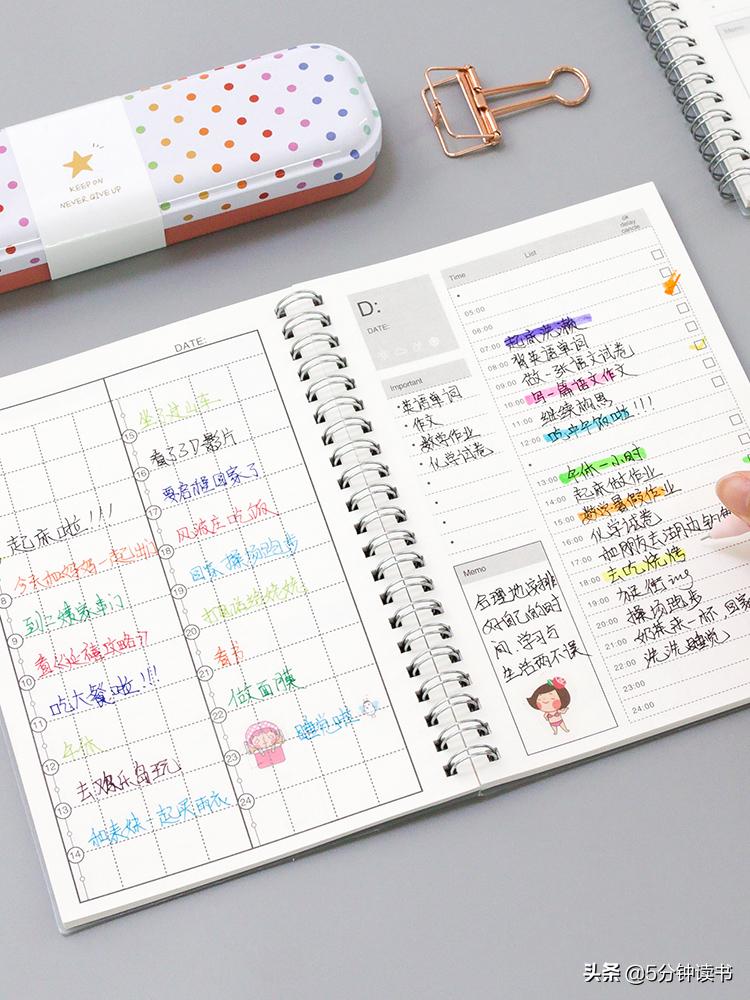 KEEP ON
NEVER GIVE UP
Memo
DATE:
起床啦!!!
8
今天和妈妈一起出门
9
到二姨家串门
10
11
吃大餐啦!!!
12
午休
13
去欢乐岛玩
14
和表妹一起买雨衣
坐了过山车
15
看了3D影片
16
要启程回家了
17
风波庄吃饭
18
回家 操场跑步
19
20
21
看书
22
做面膜
23
睡觉啦
24
D:
DATE:
Important
·英语单词
·作文
·数学作业
·化学试卷
Memo
合理地安排
好自己的时
间,学习与
生活两不误
Time
List
ok
delay
cancle
05:00
06:00
07:00 起床洗漱
08:00 背英语单词
09:00 做一张语文试卷
10:00 写一篇语文作文
11:00 继续构思
12:00 吃中午饭啦!!!
13:00 午休一小时
14:00 起来做作业
15:00 数学暑假作业
16:00 化学试卷
17:00
18:00 去吃烧烤
19:00
20:00 操场跑步
21:00 奶茶来一杯,回家
22:00 洗洗睡觉
23:00
24:00
头条 @5分钟读书